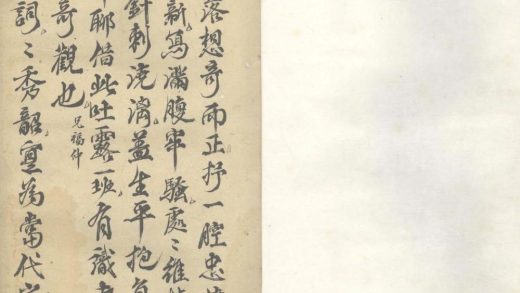 落想奇而正抒一腔忠
新寫滿腹牢騷處〻維
針刺澆漓蓋生平抱
聊借此吐露一班有識
奇觀也 兄福仲
詞〻秀韻寔為當代